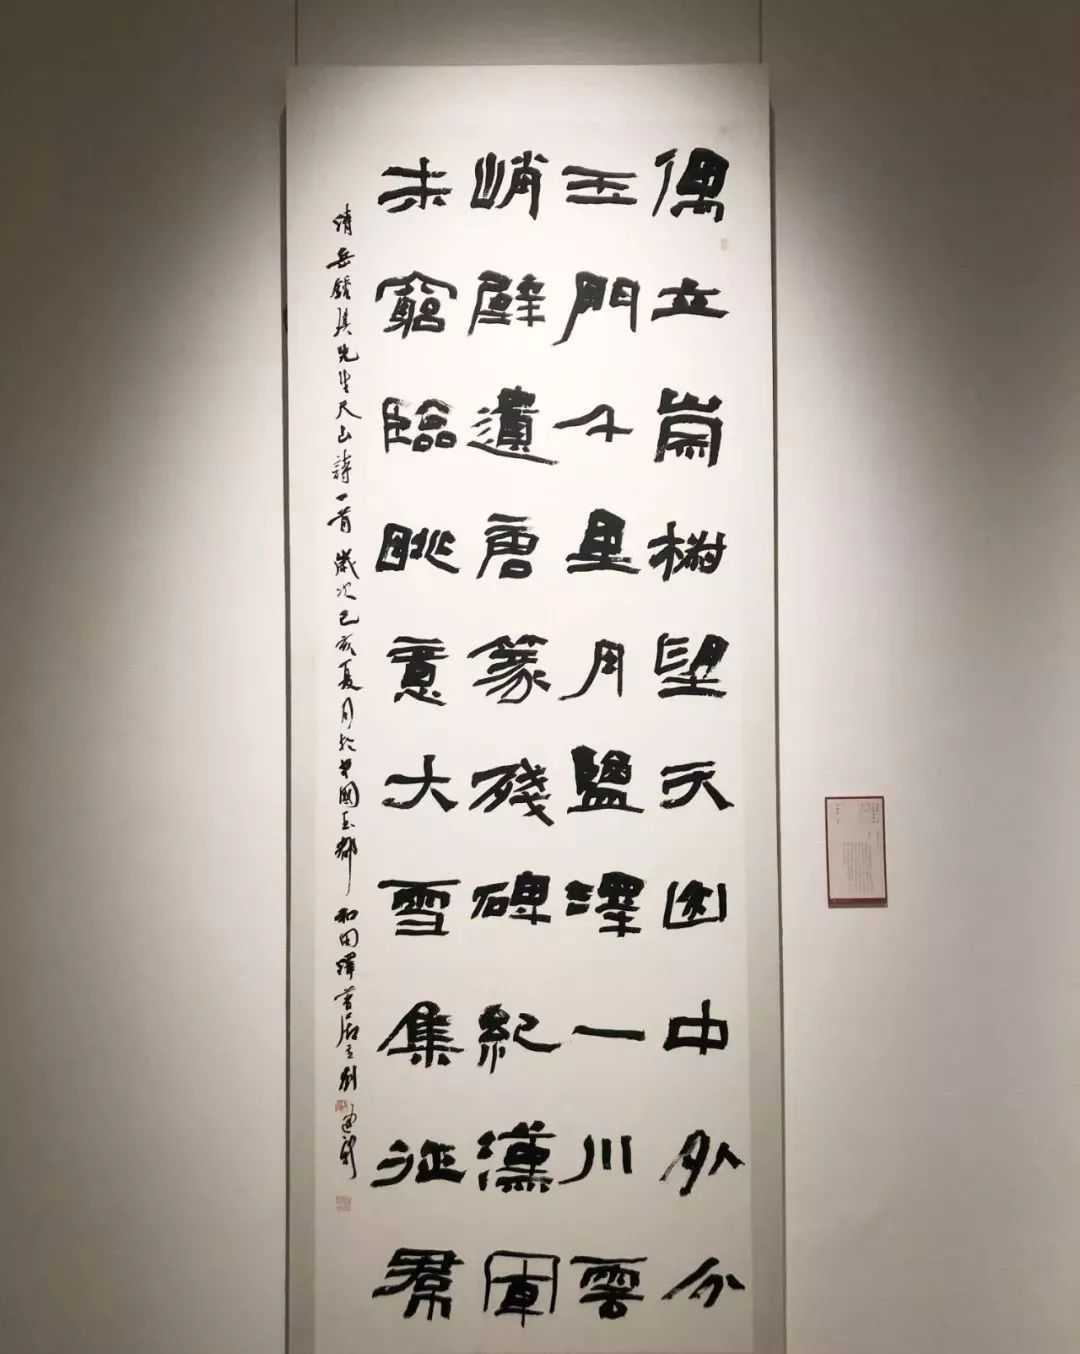 偶立崇椒望天山中外分
玉門千里月鹽澤一川雲
峭壁遺唐篆殘碑紀漢軍
未窮臨眺意大雪集征帬
清岳鍾琪先生天山詩一首歲次己亥夏月於中國玉都和田